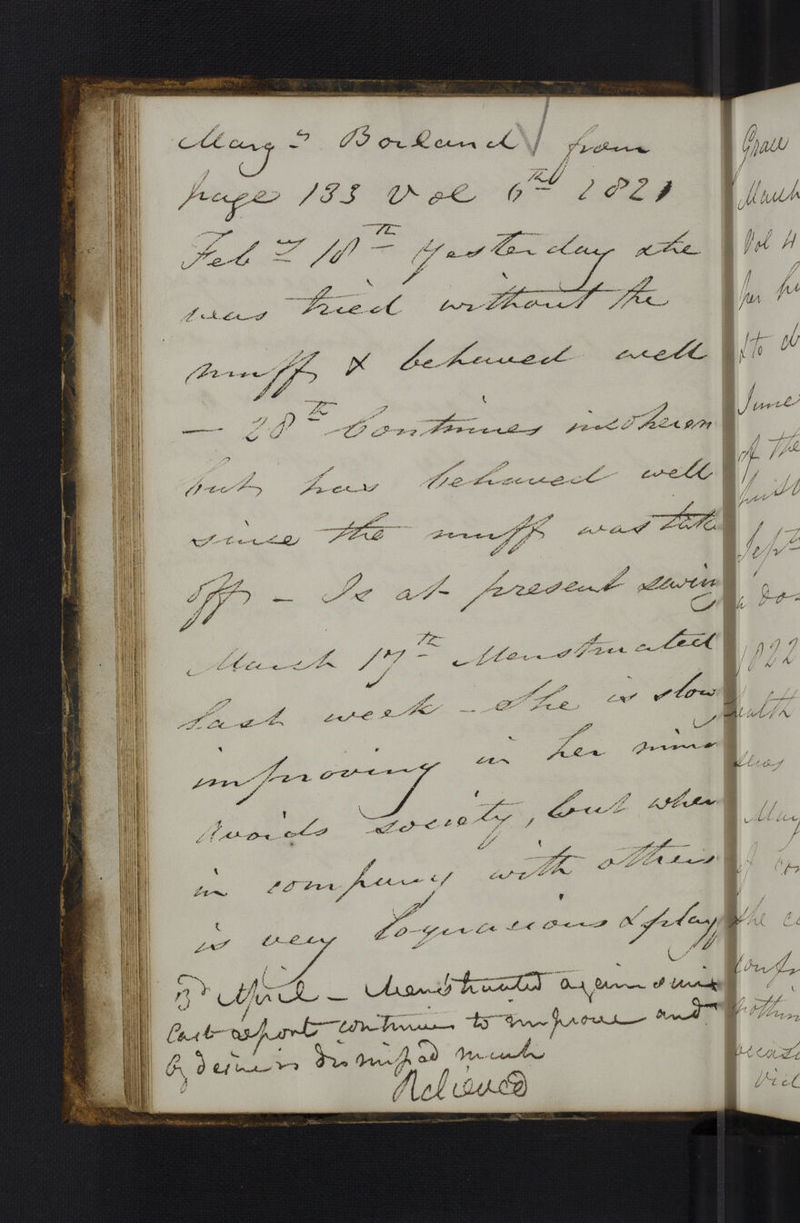 Margt Borland from
page 133 Vol 6th 1821
Feby 18th Yesterday she
was tried without the
muff & behaved well
— 28th Continues incoheren
but has behaved well
since the muff was take
off — Is at present sewin
March 17th Menstruated
last week — She is slow
improving in her mind
avoids society, but when
in company with others
is very loquacious & play
3d April — Menstruated again since
last report continues to improve and
by desire is dismissed much
Relieved
Grace
March
Vol 4
her
& to
June
of the
Septr
a do
1822
health
May
of
the
nothin
occasi